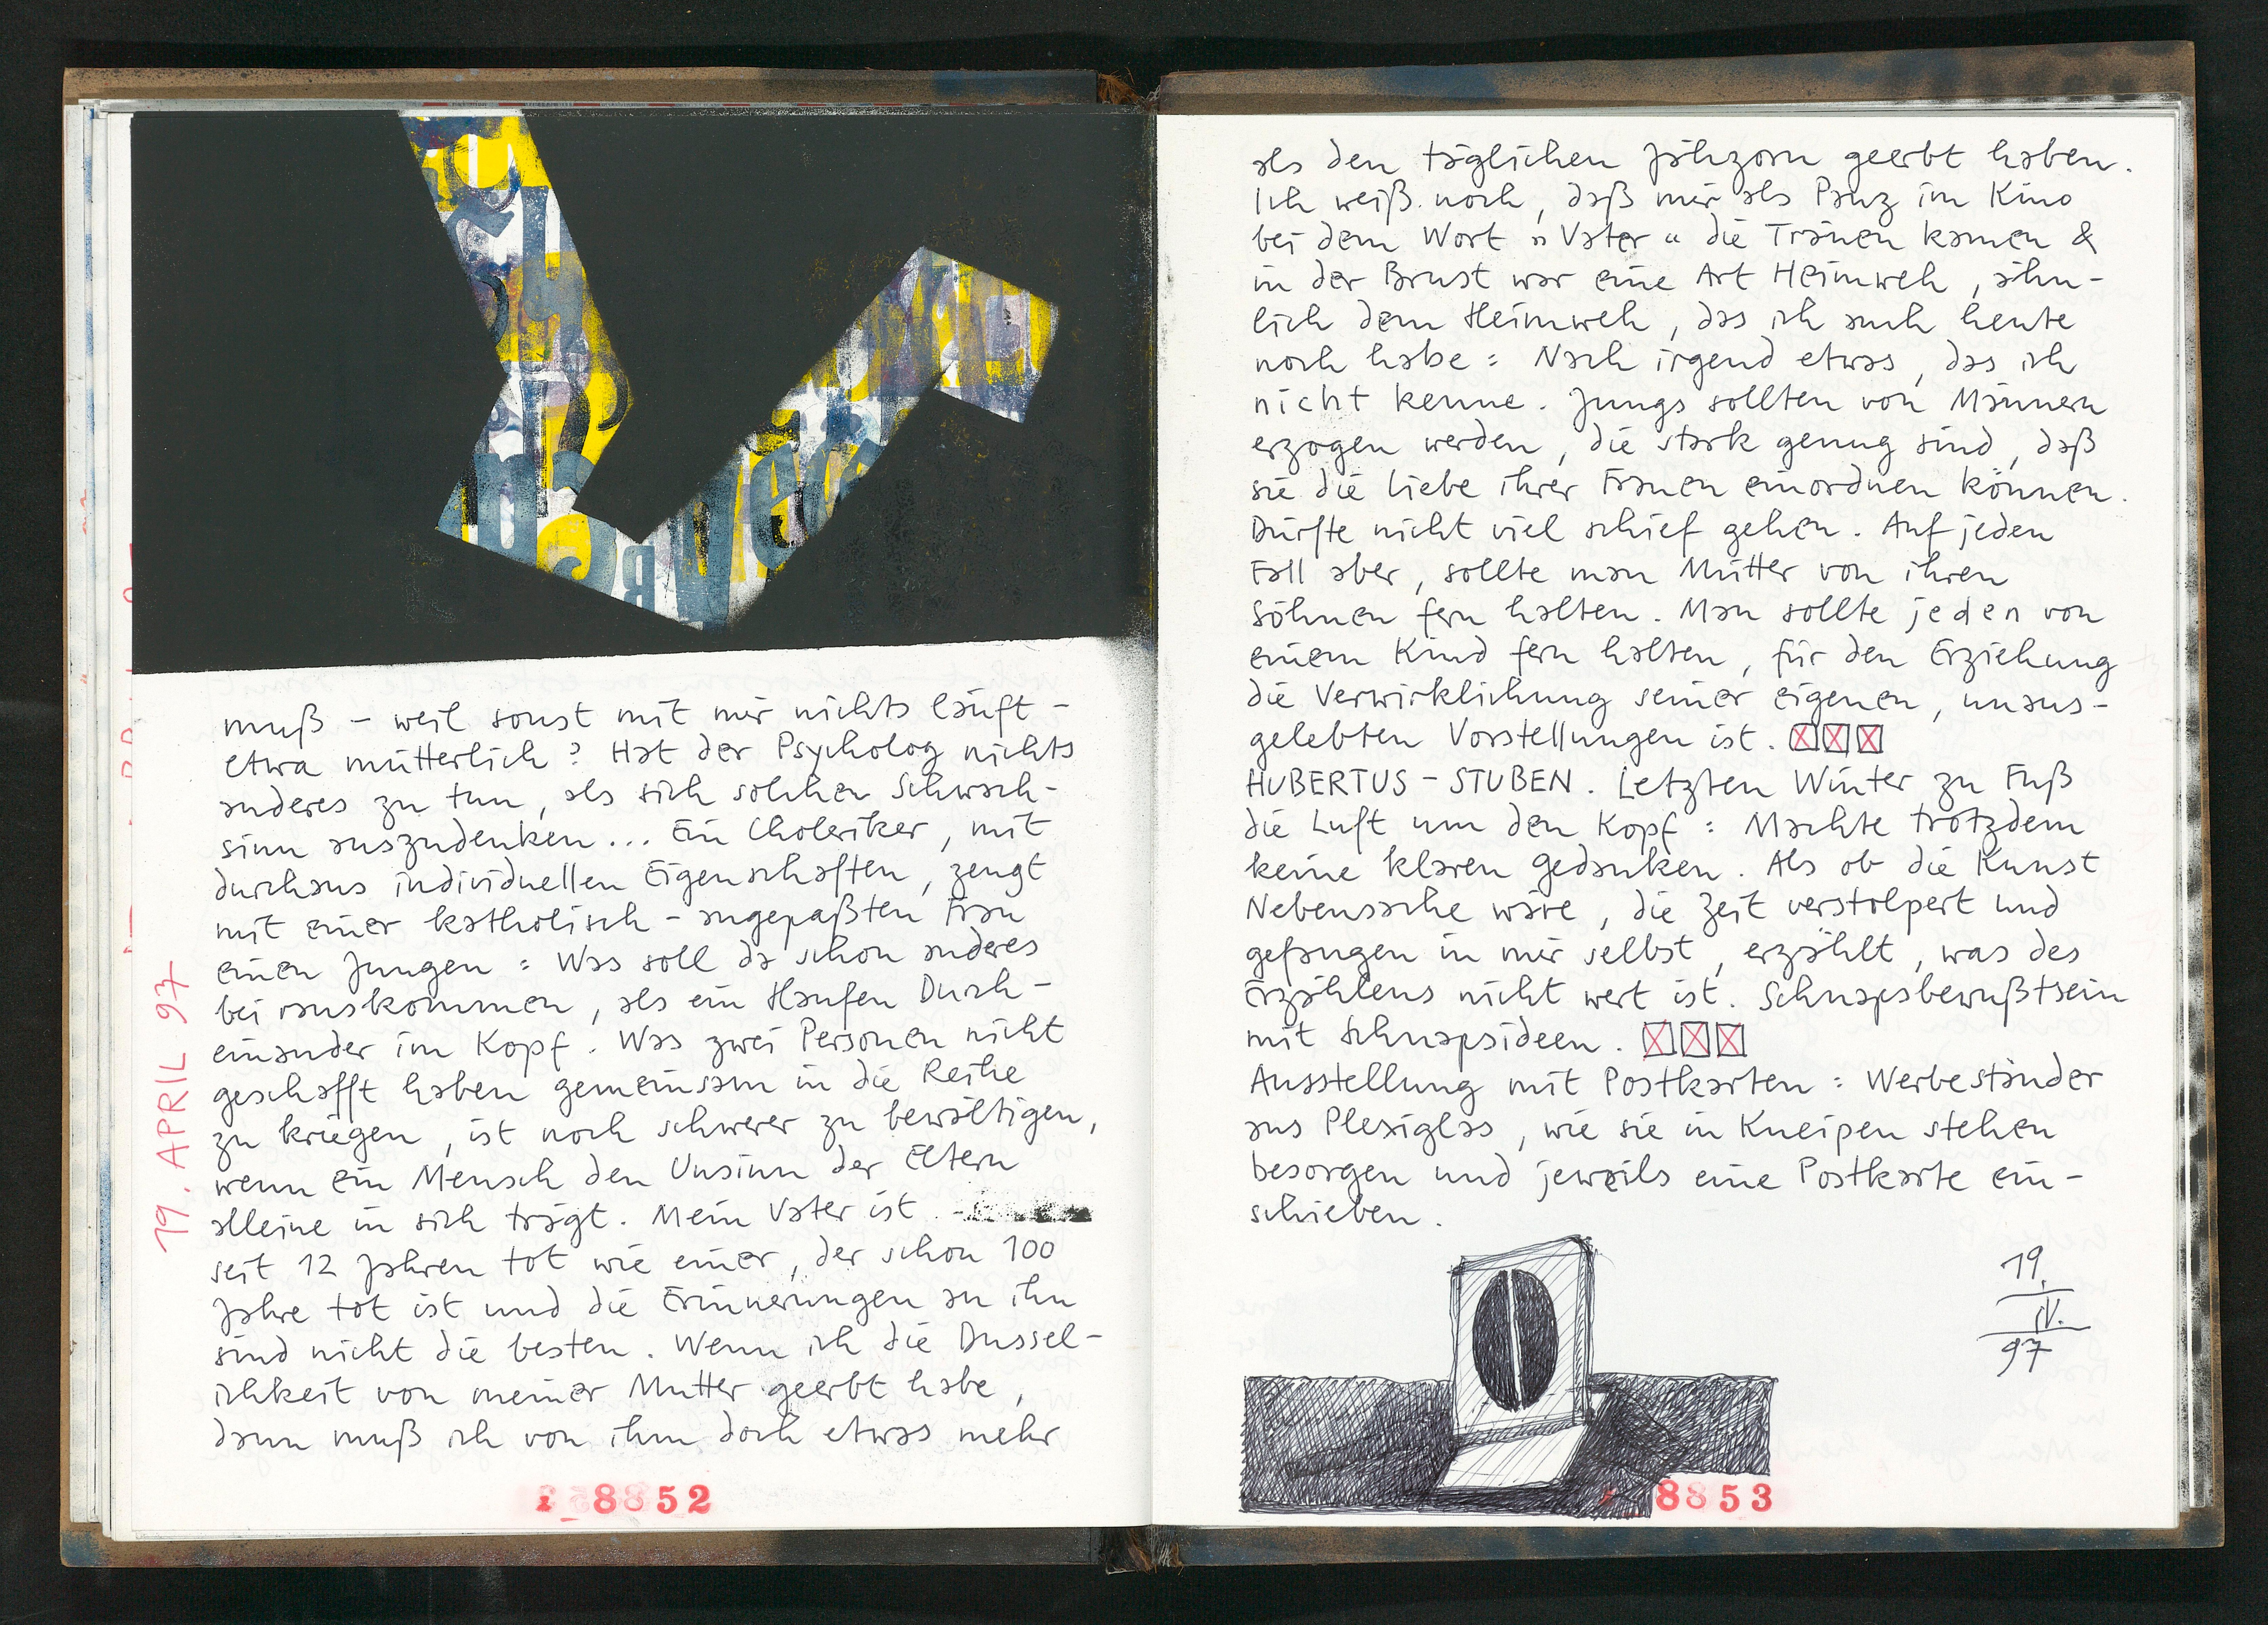 19. APRIL 97
muß – weil sonst mit mir nichts läuft –
etwa mütterlich? Hat der Psycholog nichts
anderes zu tun, als sich solchen Schwach-
sinn auszudenken... Ein Choleriker, mit
durchaus individuellen Eigenschaften, zeugt
mit einer katholisch-angepaßten Frau
einen Jungen: Was soll da schon anderes
bei rauskommen, als ein Haufen Durch-
einander im Kopf. Was zwei Personen nicht
geschafft haben gemeinsam in die Reihe
zu kriegen, ist noch schwerer zu bewältigen,
wenn ein Mensch den Unsinn der Eltern
alleine in sich trägt. Mein Vater ist
seit 12 Jahren tot wie einer, der schon 100
Jahre tot ist und die Erinnerungen an ihn
sind nicht die besten. Wenn ich die Dussel-
ichkeit von meiner Mutter geerbt habe,
dann muß ich von ihm doch etwas mehr
8852
als den täglichen Jähzorn geerbt haben.
Ich weiß noch, daß mir als Panz im Kino
bei dem Wort »Vater« die Tränen kamen &
in der Brust war eine Art Heimweh, ähn-
lich dem Heimweh, das ich auch heute
noch habe: Nach irgend etwas, das ich
nicht kenne. Jungs sollten von Männern
erzogen werden, die stark genug sind, daß
sie die Liebe ihrer Frauen einordnen können.
Dürfte nicht viel schief gehen. Auf jeden
Fall aber, sollte man Mütter von ihren
Söhnen fern halten. Man sollte jeden von
einem Kind fern halten, für den Erziehung
die Verwirklichung seiner eigenen, unaus-
gelebten Vorstellungen ist.
HUBERTUS-STUBEN. Letzten Winter zu Fuß
die Luft um den Kopf: Machte trotzdem
keine klaren Gedanken. Als ob die Kunst
Nebensache wäre, die Zeit verstolpert und
gefangen in mir selbst, erzählt, was des
Erzählens nicht wert ist. Schnapsbewußtsein
mit Schnapsideen.
Ausstellung mit Postkarten: Werbeständer
aus Plexiglas, wie sie in Kneipen stehen
besorgen und jeweils eine Postkarte ein-
schieben.
19.
IV.
97
8853